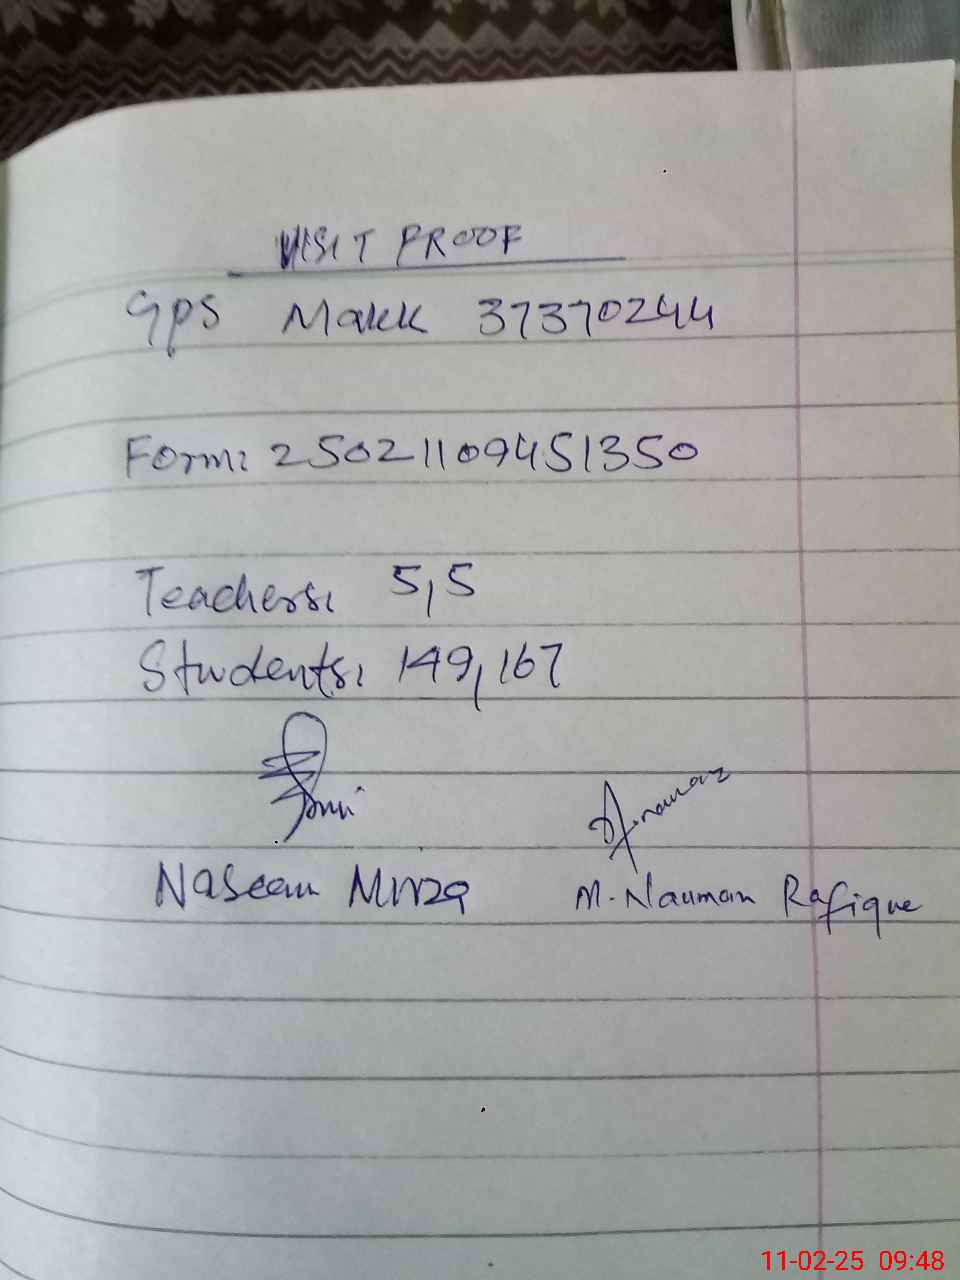 VISIT PROOF
GPS Makk 37370244
Form: 25021109451350
Teachers: 5,5
Students: 149,167
Naseem Mirza M. Nauman Rafique
11-02-25 09:48